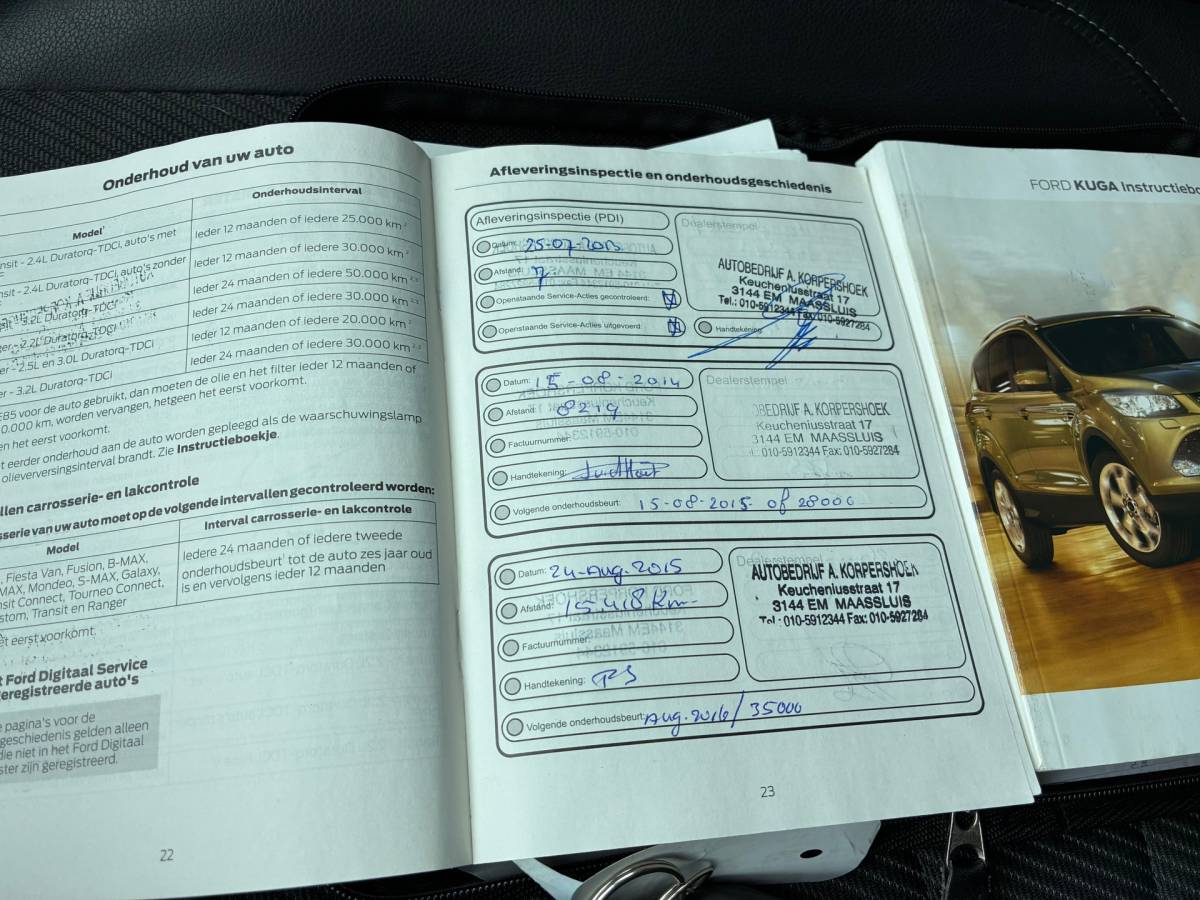 Onderhoud van uw auto
Model¹
Onderhoudsinterval
nsit - 2.4L Duratorq-TDCi, auto's met
Ieder 12 maanden of iedere 25.000 km ²
nsit - 2.4L Duratorq-TDCi, auto's zonder
Ieder 12 maanden of iedere 30.000 km ²
3.2L Duratorq-TDCi
Ieder 24 maanden of iedere 50.000 km
er - 2.2L Duratorq-TDCi
Ieder 24 maanden of iedere 30.000 km
er - 2.5L en 3.0L Duratorq-TDCi
Ieder 12 maanden of iedere 20.000 km
er - 3.2L Duratorq-TDCi
Ieder 24 maanden of iedere 30.000 km
E85 voor de auto gebruikt, dan moeten de olie en het filter ieder 12 maanden of
0.000 km, worden vervangen, hetgeen het eerst voorkomt.
en het eerst voorkomt.
t eerder onderhoud aan de auto worden gepleegd als de waarschuwingslamp
olieverversingsinterval brandt. Zie Instructieboekje.
llen carrosserie- en lakcontrole
sserie van uw auto moet op de volgende intervallen gecontroleerd worden:
Model
Interval carrosserie- en lakcontrole
, Fiesta Van, Fusion, B-MAX,
MAX, Mondeo, S-MAX, Galaxy,
nsit Connect, Tourneo Connect,
stom, Transit en Ranger
Iedere 24 maanden of iedere tweede
onderhoudsbeurt¹ tot de auto zes jaar oud
is en vervolgens ieder 12 maanden
et eerst voorkomt.
t Ford Digitaal Service
geregistreerde auto's
e pagina's voor de
geschiedenis gelden alleen
die niet in het Ford Digitaal
ster zijn geregistreerd.
22
Afleveringsinspectie en onderhoudsgeschiedenis
Afleveringsinspectie (PDI)
Datum: 25-07-2013
Afstand: 7
Openstaande Service-Acties gecontroleerd:
Openstaande Service-Acties uitgevoerd:
Dealerstempel
AUTOBEDRIJF A. KORPERSHOEK
Keucheniusstraat 17
3144 EM MAASSLUIS
Tel.: 010-5912344 Fax: 010-5927284
Handtekening
Datum: 15-08-2014
Afstand: 8219
Factuurnummer:
Handtekening:
Dealerstempel
BEDRIJF A. KORPERSHOEK
Keucheniusstraat 17
3144 EM MAASSLUIS
010-5912344 Fax: 010-5927284
Volgende onderhoudsbeurt: 15-08-2015 of 28000
Datum: 24-Aug.2015
Afstand: 15.418 Km-
Factuurnummer:
Handtekening:
Dealerstempel
AUTOBEDRIJF A. KORPERSHOEK
Keucheniusstraat 17
3144 EM MAASSLUIS
Tel.: 010-5912344 Fax: 010-5927284
Volgende onderhoudsbeurt: Aug.2016/35000
23
FORD KUGA Instructiebo